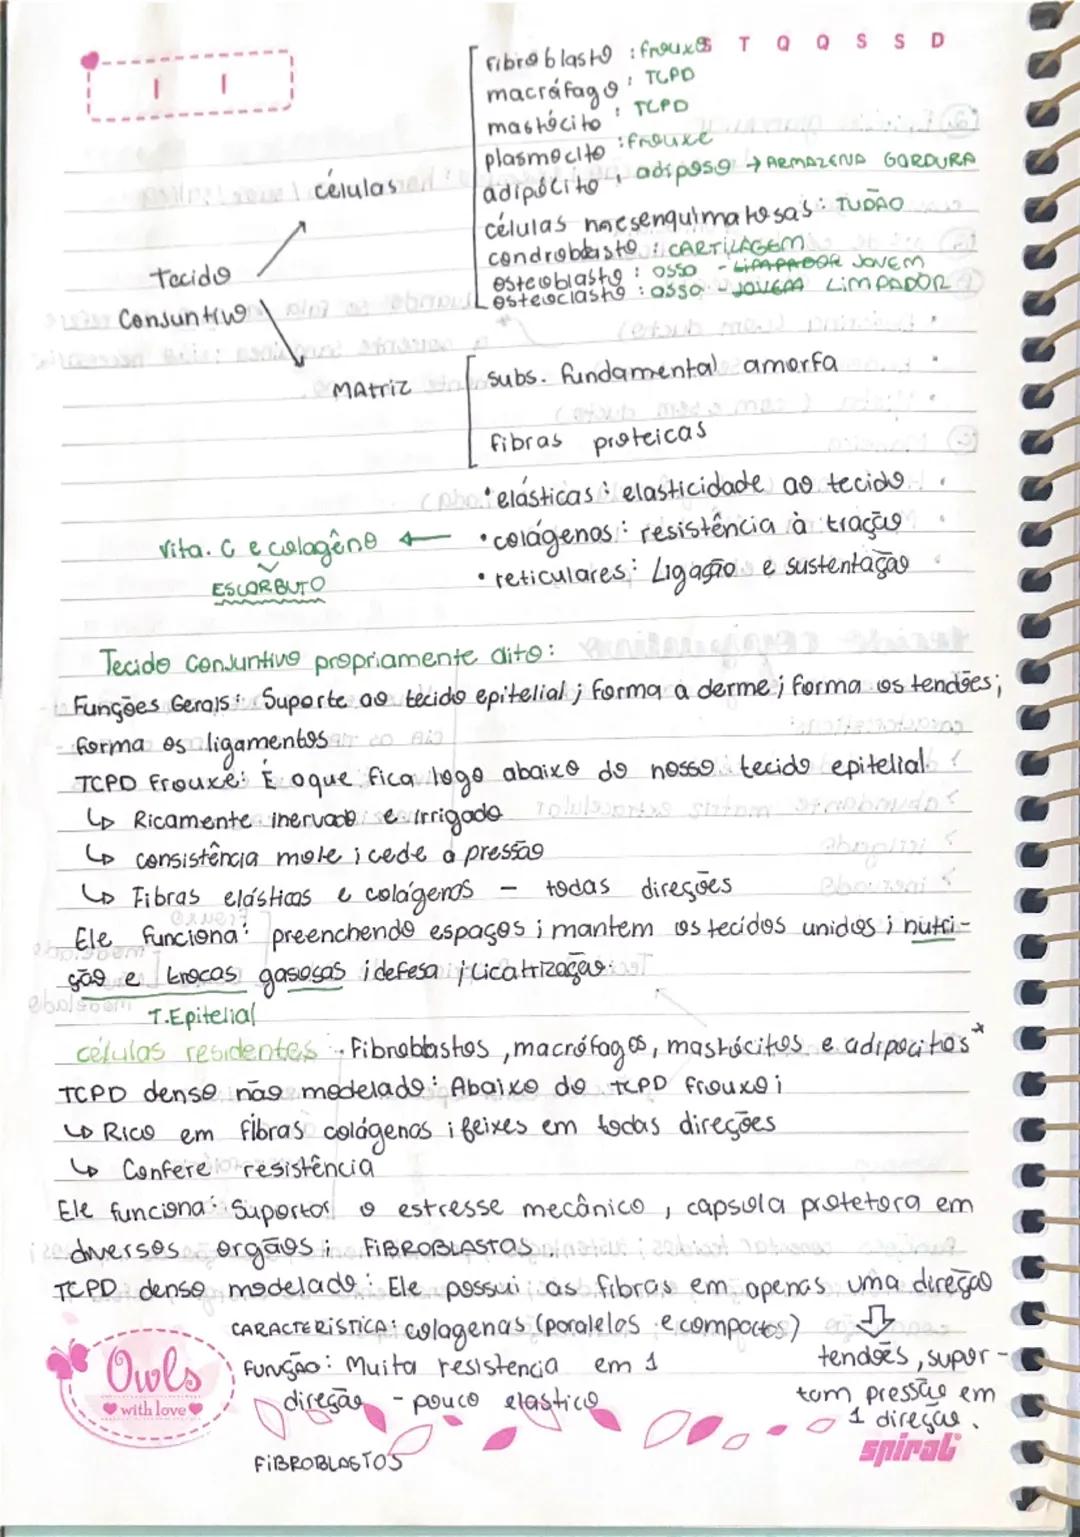 T Q Q S S D
fibroblasto : frouxo
macrófago : TCPD
mastócito : TCPD
plasmocito : frouxe
adipócito , adiposo → ARMAZENA GORDURA
células mesenquimatosas : TUDÃO
condroblasto : CARTILAGEM
osteoblasto : osso - LIMPADOR JOVEM
osteoclasto : osso - JOVEM LIMPADOR
células
Tecido
Conjuntivo
MATriz
subs. fundamental amorfa
fibras proteicas
• elásticas : elasticidade ao tecido
Vita. C e colagêno ← • colágenos : resistência à tração
ESCORBUTO
• reticulares : Ligação e sustentação
Tecido Conjuntivo propriamente dito:
Funções Gerais: Suporte ao tecido epitelial ; forma a derme ; forma os tendões ;
forma os ligamentos
TCPD Frouxe: É oque fica logo abaixo do nosso tecido epitelial
↳ Ricamente inervado e irrigado
↳ consistência mole ; cede a pressão
↳ Fibras elásticas e colágenos - todas direções
Ele funciona: preenchendo espaços ; mantem os tecidos unidos ; nutri-
ção e trocas gasosas ; defesa ; cicatrização.
T.Epitelial
células residentes . Fibroblastos , macrófagos , mastócitos e adipocitos *
TCPD denso não modelado : Abaixo do TCPD frouxo ;
↳ Rico em fibras colágenos ; feixes em todas direções
↳ Confere resistência
Ele funciona : Suportar o estresse mecânico , capsula protetora em
diversos orgãos ; FIBROBLASTOS .
TCPD denso modelado : Ele possui as fibras em apenas uma direção
CARACTERíSTICA : colagenas (paralelos e compactos)
função : Muita resistencia em 1
direção - pouco elastico
tendões , supor-
tam pressão em
1 direção .
Owls
with love
FiBROBLASTOS
spiral